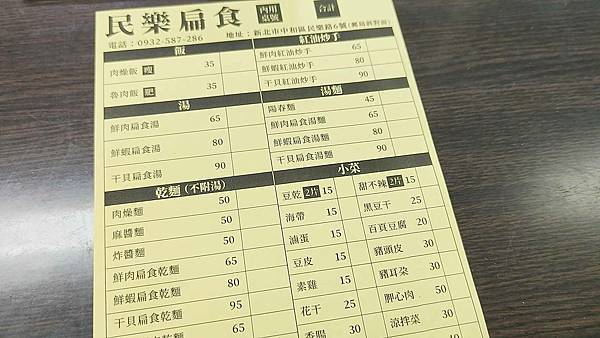 民樂扁食 內用桌號 合計
電話：0932-587-286 地址：新北市中和區民樂路6號(郵局斜對面)
飯
肉燥飯 瘦 35
魯肉飯 肥 35
湯
鮮肉扁食湯 65
鮮蝦扁食湯 80
干貝扁食湯 90
乾麵(不附湯)
肉燥麵 50
麻醬麵 50
炸醬麵 50
鮮肉扁食乾麵 65
鮮蝦扁食乾麵 80
干貝扁食乾麵 95
65
紅油炒手
鮮肉紅油炒手 65
鮮蝦紅油炒手 80
干貝紅油炒手 90
湯麵
陽春麵 45
鮮肉扁食湯麵 65
鮮蝦扁食湯麵 80
干貝扁食湯麵 90
小菜
豆乾 2片 15
海帶 15
滷蛋 15
豆皮 15
素雞 15
花干 25
香腸 30
甜不辣 2片 15
黑豆干 25
百頁豆腐 20
豬頭皮 30
豬耳朶 30
肝心肉 50
涼拌菜 30
40